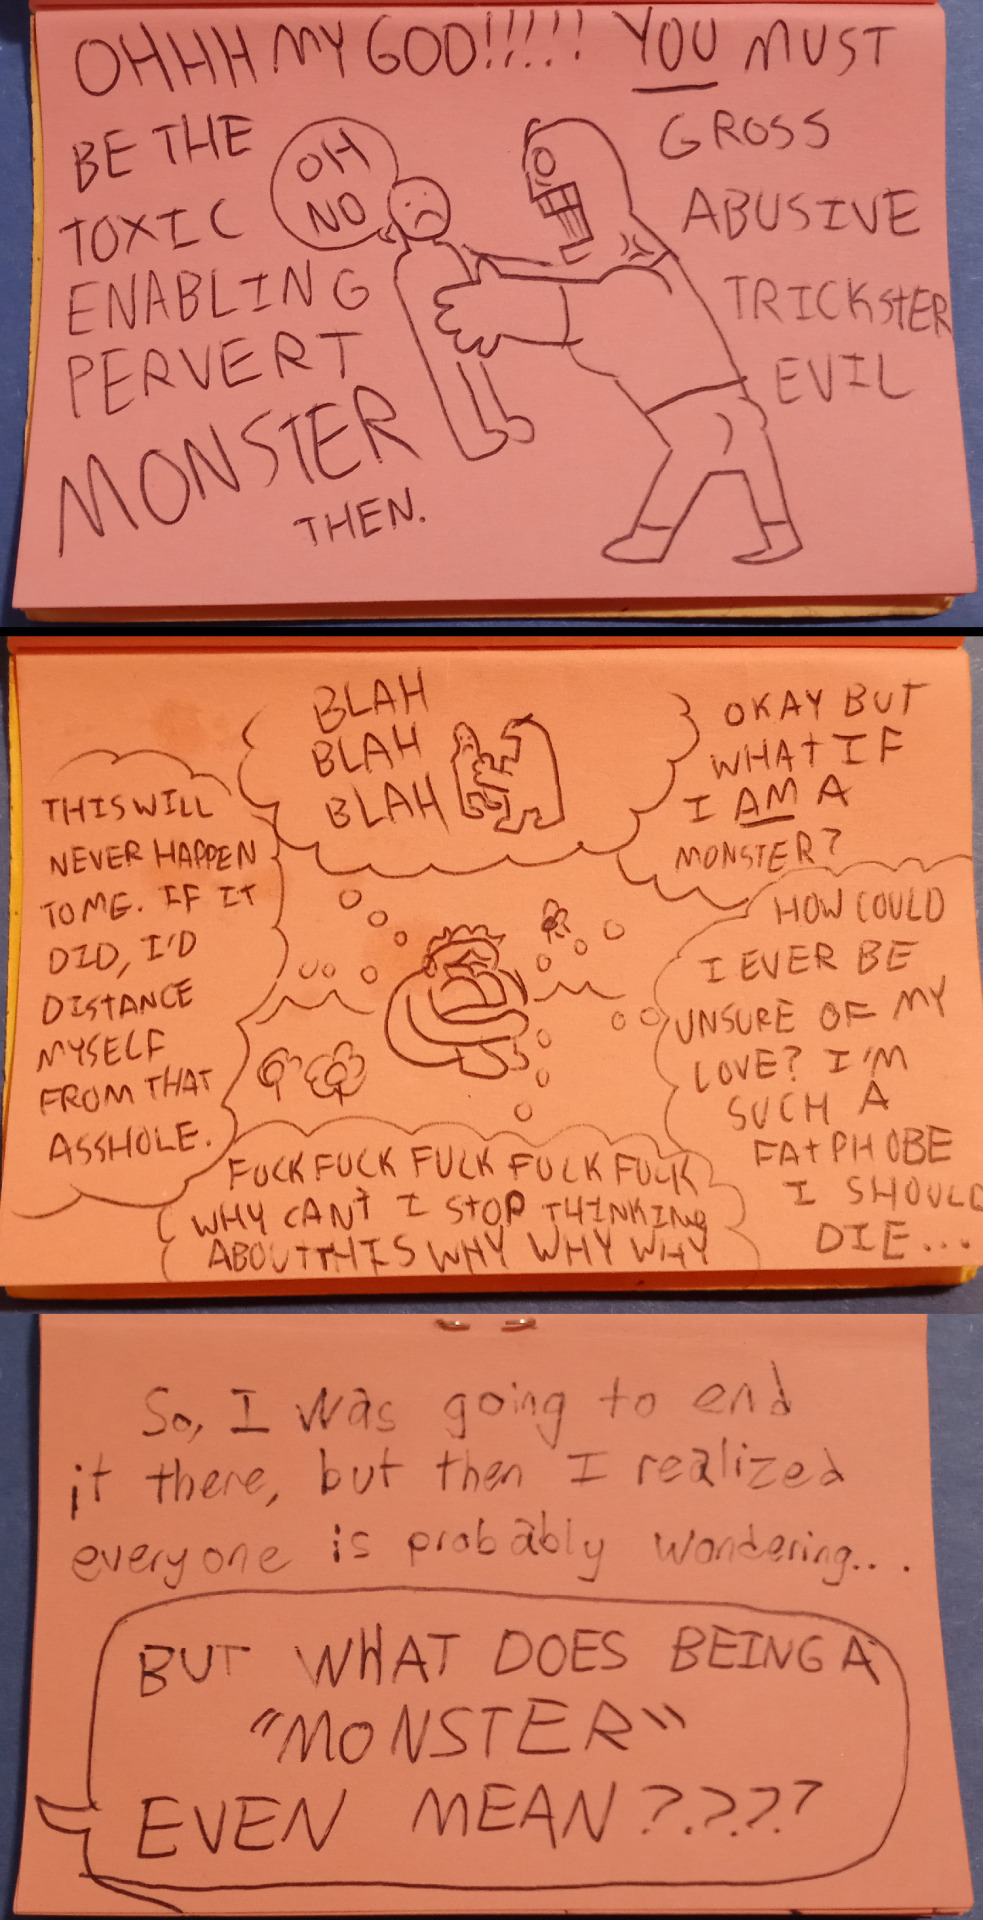 OHHH MY GOD!!!!! YOU MUST
BE THE
TOXIC
ENABLING
PERVERT
MONSTER
THEN.
OH
NO
GROSS
ABUSIVE
TRICKSTER
EVIL
BLAH
BLAH
BLAH
OKAY BUT
WHAT IF
I AM A
MONSTER?
THIS WILL
NEVER HAPPEN
TO ME. IF IT
DID, I'D
DISTANCE
MYSELF
FROM THAT
ASSHOLE.
HOW COULD
I EVER BE
UNSURE OF MY
LOVE? I'M
SUCH A
FATPHOBE
I SHOULD
DIE...
FUCK FUCK FUCK FUCK FUCK
WHY CAN'T I STOP THINKING
ABOUT THIS WHY WHY WHY
So, I was going to end
it there, but then I realized
everyone is probably wondering...
BUT WHAT DOES BEING A
"MONSTER"
EVEN MEAN????